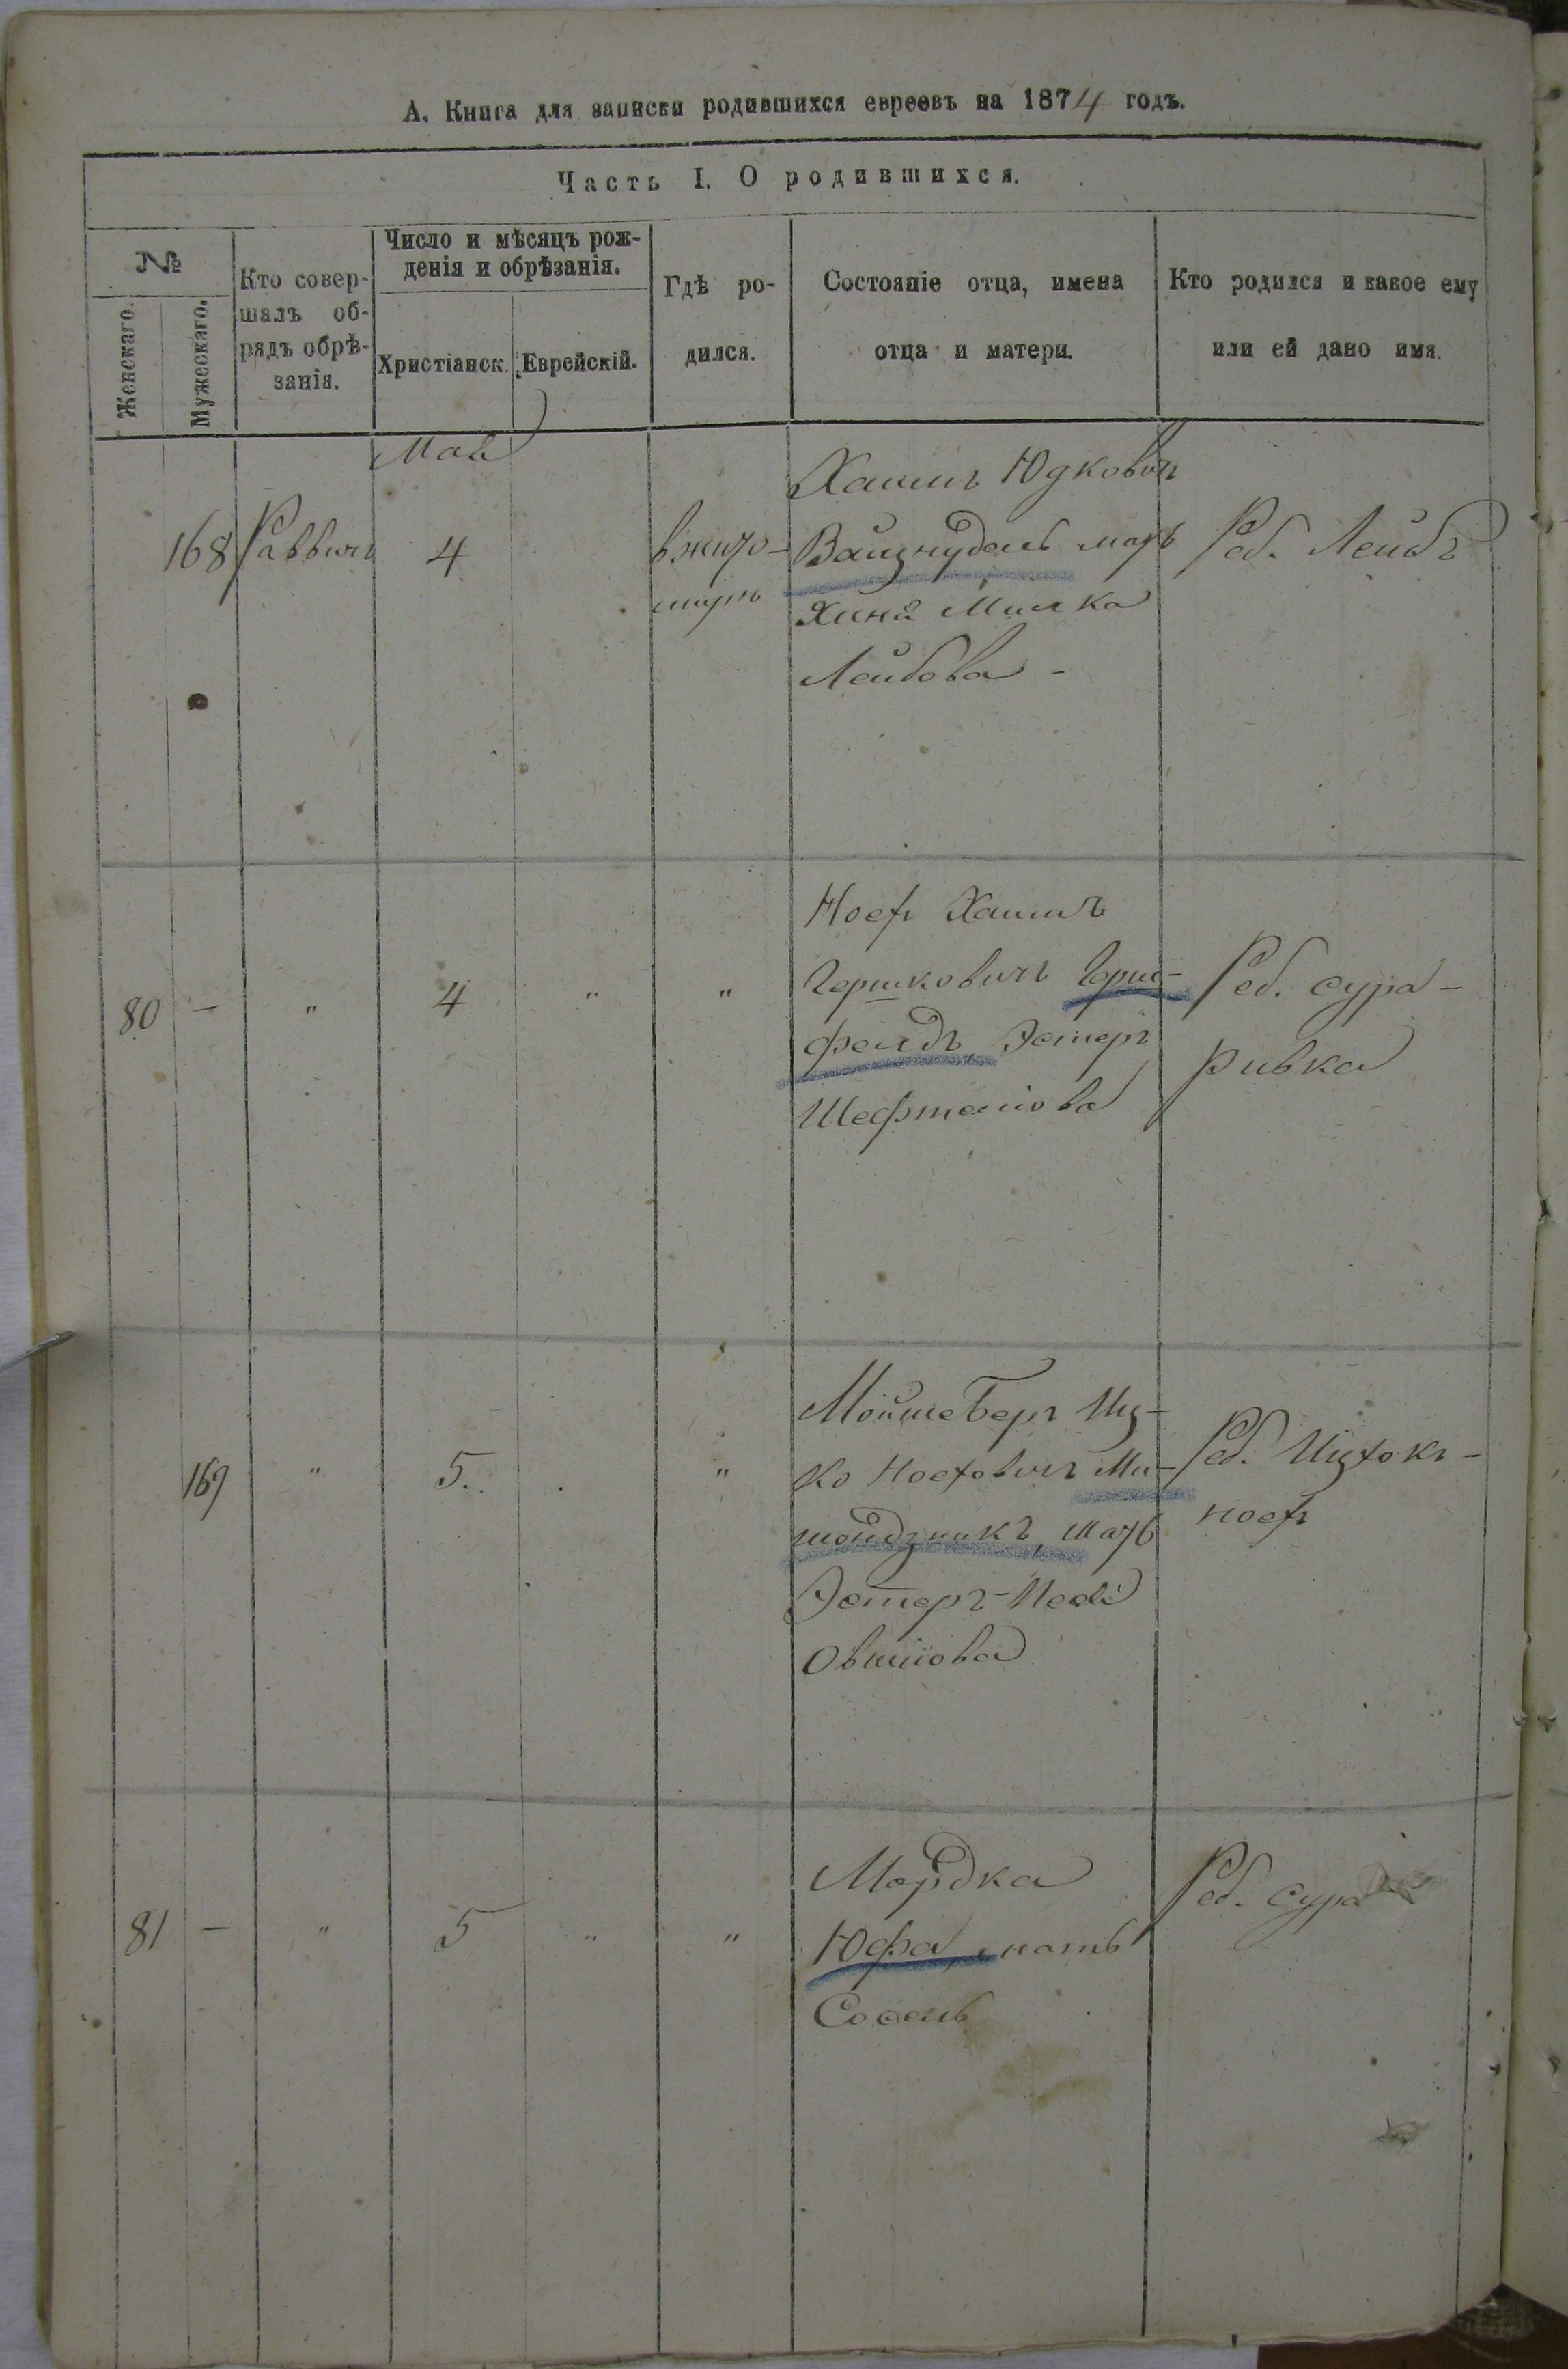 А. Книга для записки родившихся евреевъ на 1874 годъ.
Часть I. О родившихся.
№
Женскаго.
Мужескаго.
Кто совер-
шалъ об-
рядъ обрѣ-
занія.
Число и мѣсяцъ рож-
денія и обрѣзанія.
Христіанск.
Еврейскій.
Гдѣ ро-
дился.
Состояніе отца, имена
отца и матери.
Кто родился и какое ему
или ей дано имя.
Мая
168
Раввинъ
4
в жито-
миръ
Хаимъ Юдкович
мать
Милка
Лейбова -
Реб. Лейбъ
80
-
"
4
"
"
Йосф Хаимъ
Гершковичъ Герш-
фелдъ, Эстеръ
Шефтелiова
Реб. сура -
ривка
169
"
5.
"
МойшеБеръ Иц-
ко
мать
Эстеръ-
Овшiова
Реб.
81
-
"
5
"
"
Мордка
Юфа, мать
Сосель
Реб. сура